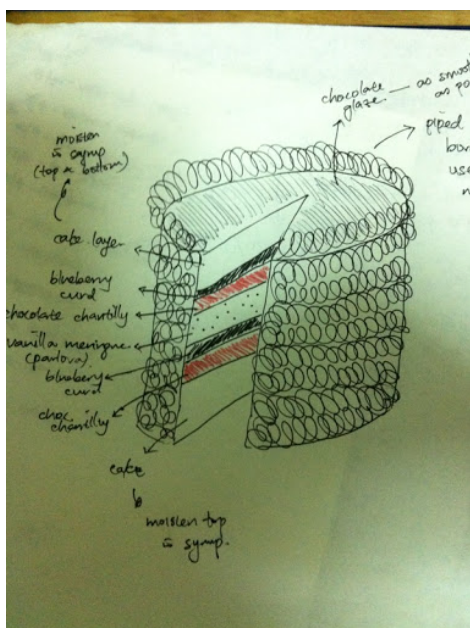 chocolate
glaze. — as smooth
as po
piped
bor
use
n
moisten
w syrup
(top & bottom)
cake layer
blueberry
curd
chocolate chantilly
vanilla meringue
(pavlova)
blueberry
curd
choc
chantilly
cake
moisten top
w syrup.